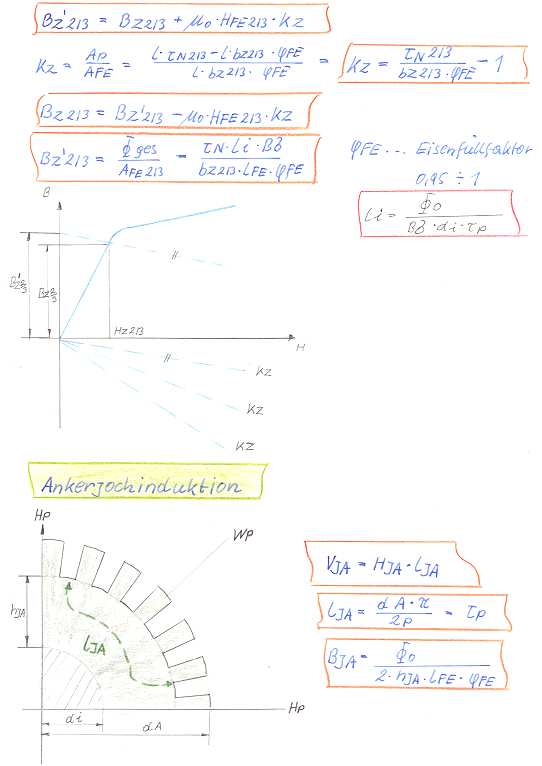 Bz'2/3 = Bz2/3 + μ0·HFE2/3·Kz
Kz = AP/AFE = (l·τN2/3 - l·bz2/3·φFE)/(l·bz2/3·φFE) = Kz = τN2/3/(bz2/3·φFE) - 1
Bz2/3 = Bz'2/3 - μ0·HFE2/3·Kz
Bz'2/3 = Φges/AFE2/3 = (τN·Li·Bδ)/(bz2/3·LFE·φFE)
φFE ... Eisenfüllfaktor
0,95 ÷ 1
Li = Φ0/(Bδ·αi·τp)
B
Bz'2/3
Bz2/3
Hz2/3
H
Kz
Kz
Kz
Ankerjochinduktion
Hp
Wp
hJA
lJA
Hp
di
dA
VJA = HJA·lJA
lJA = (dA·π)/2p = τp
BJA = Φ0/(2·hJA·lFE·φFE)